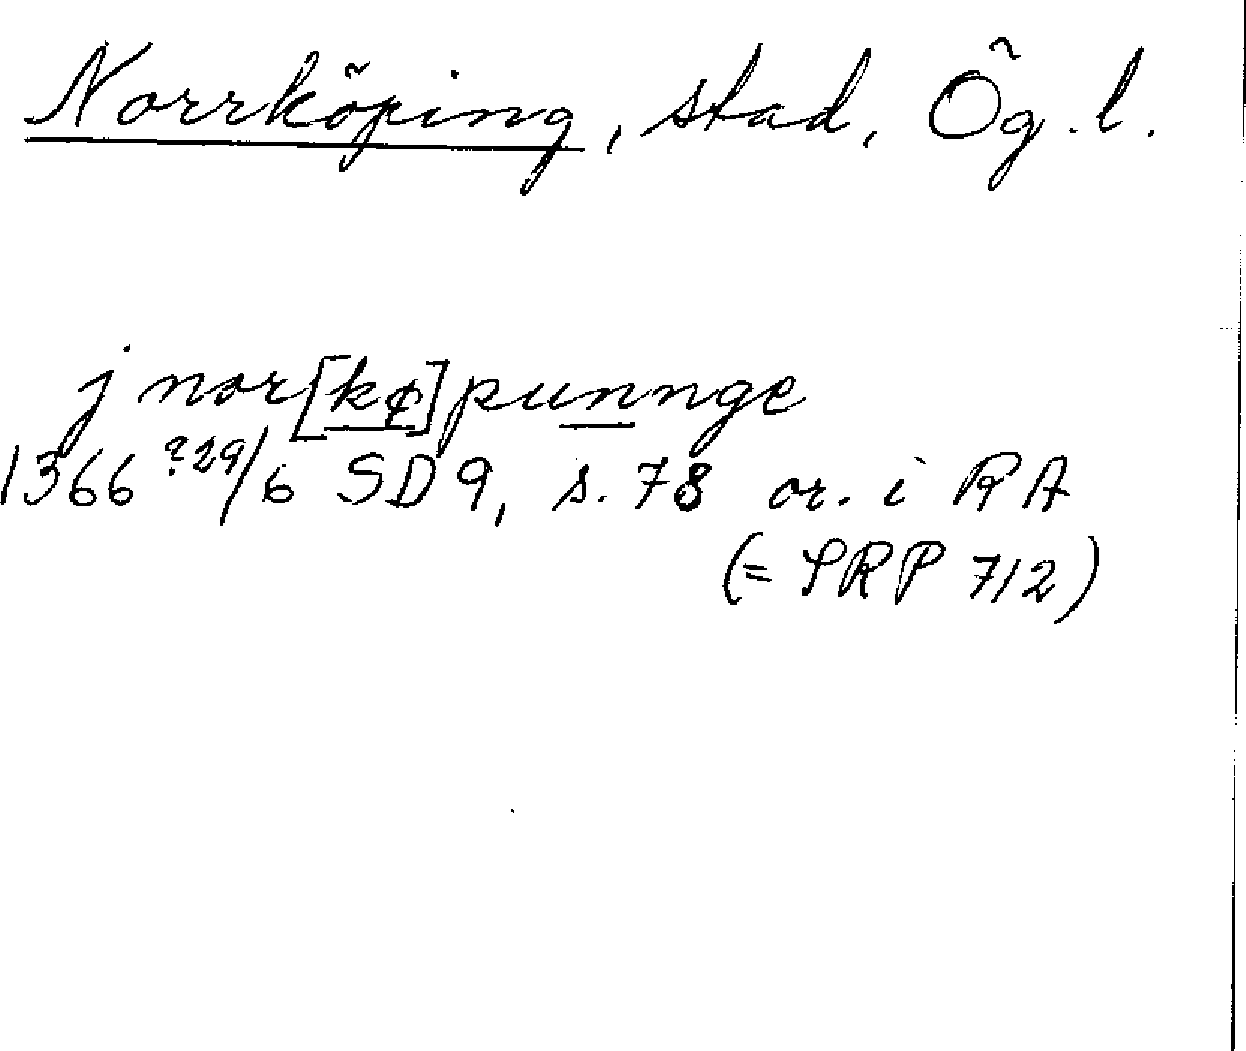 Norrköping, stad, Ög.l.
j nor[kø]punnge
1366 ?29/6 SD 9, s. 78 or. i RA
(= SRP 712)